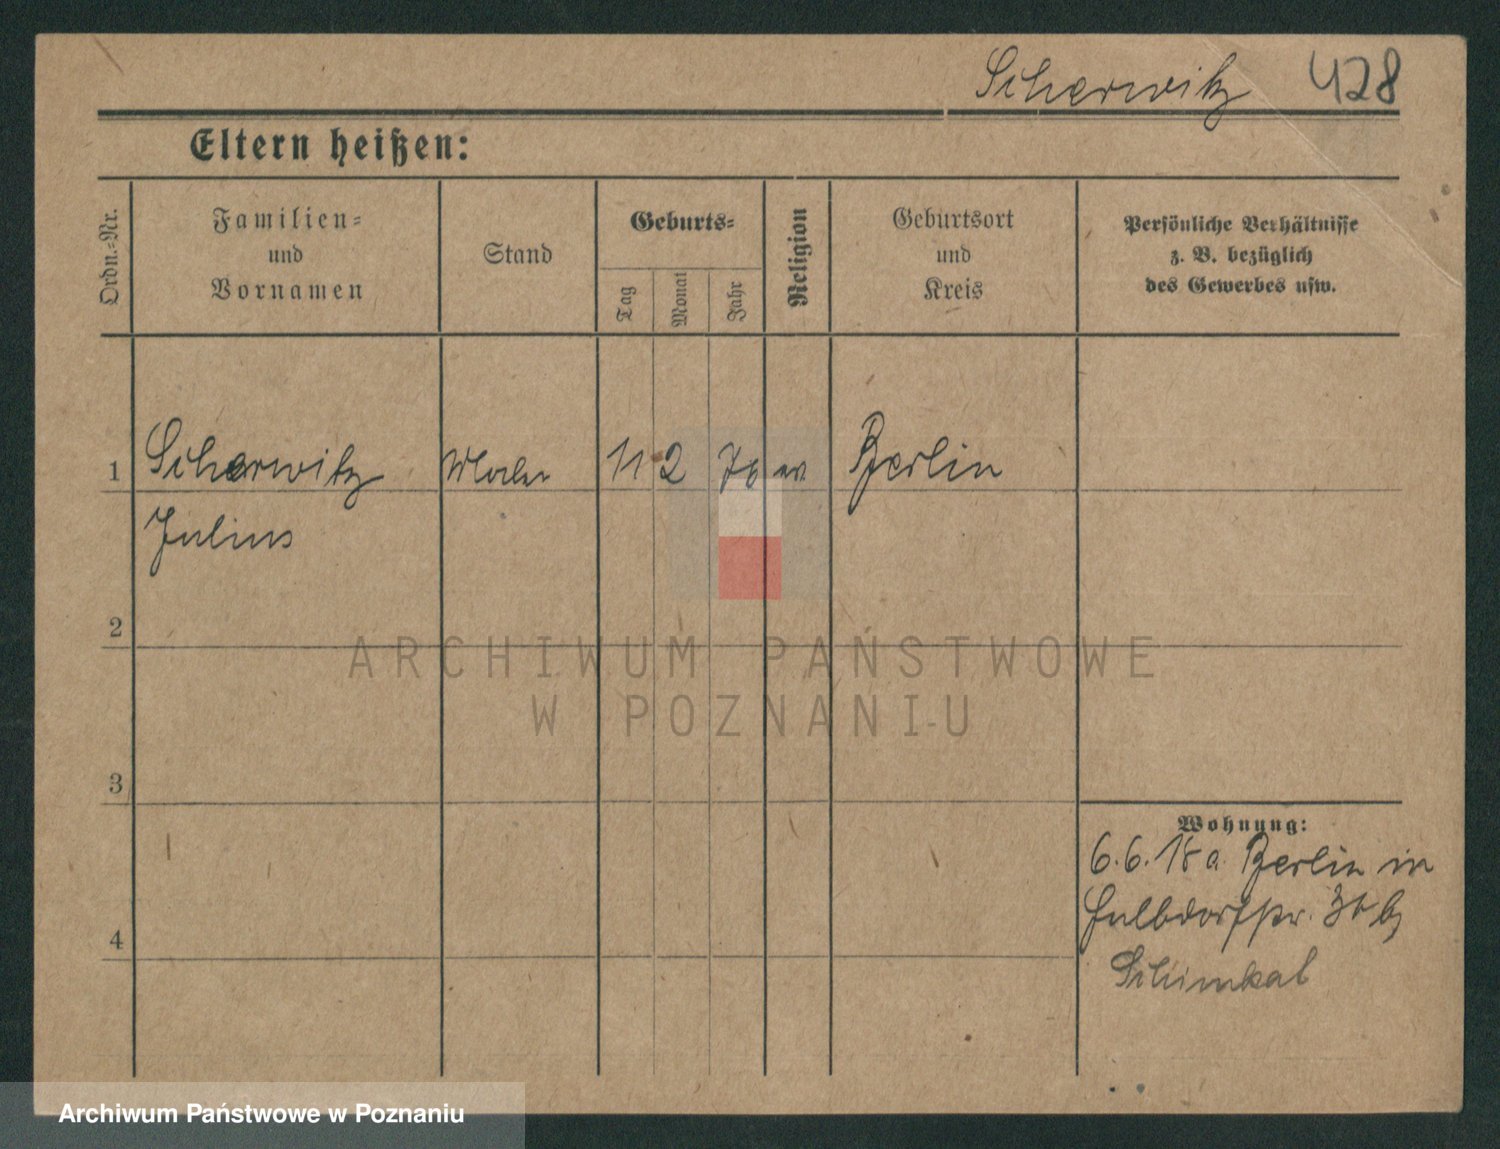 Scherwitz 428
Eltern heißen:
Ordn.-Nr.
Familien-
und
Vornamen
Stand
Geburts-
Tag
Monat
Jahr
Religion
Geburtsort
und
Kreis
Persönliche Verhältnisse
z. B. bezüglich
des Gewerbes usw.
1 Scherwitz Maler 11 2 76 ev. Berlin
Julius
2
3
4
Wohnung:
6.6.18 a. Berlin in
36 b
Schimkat
ARCHIWUM PAŃSTWOWE
W POZNANIU
Archiwum Państwowe w Poznaniu